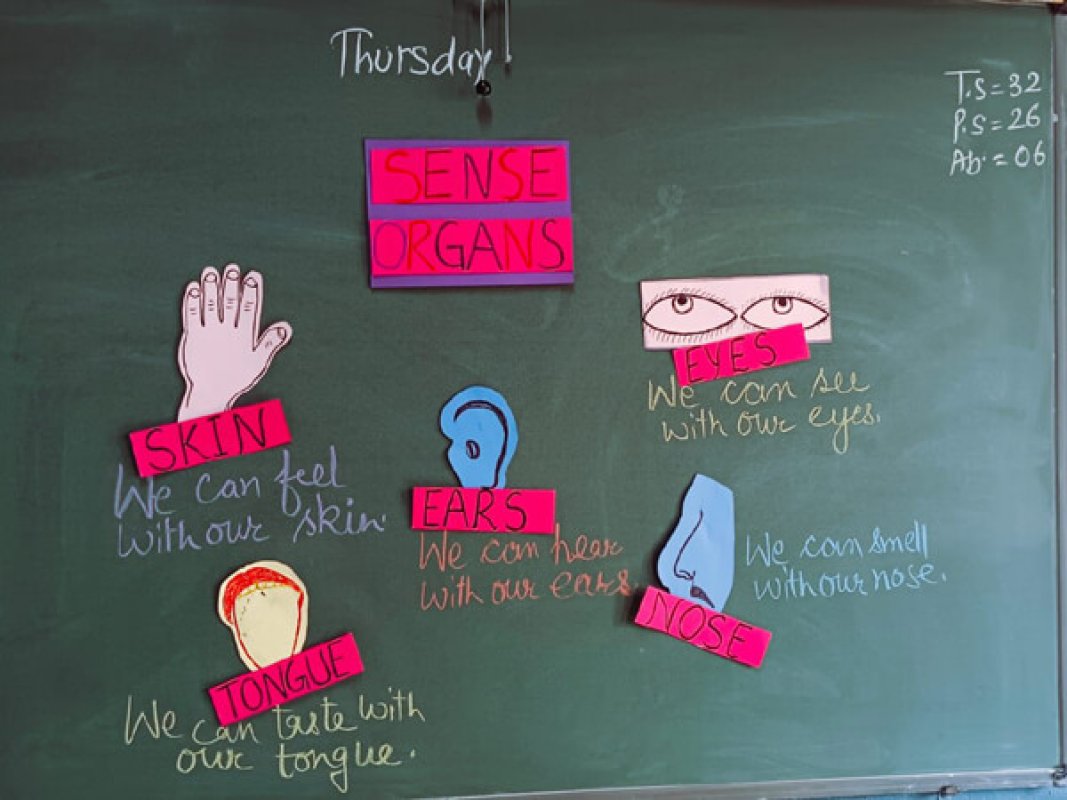 Thursday
T.S = 32
P.S = 26
Ab. = 06
SENSE
ORGANS
SKIN
We can feel
with our skin.
EARS
We can hear
with our ears.
EYES
We can see
with our eyes.
NOSE
We can smell
with our nose.
TONGUE
We can taste with
our tongue.